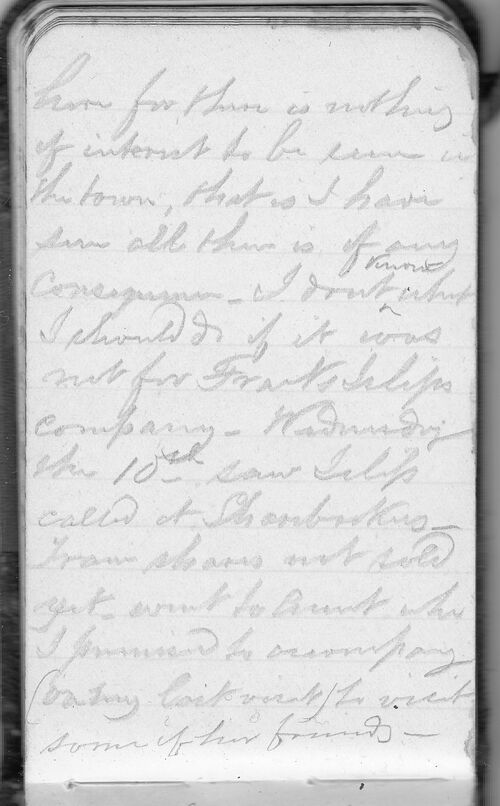 here for there is nothing
of interest to be seen in
the town, that is I have
seen all there is of any
consequence - I dont know what
I should do if it was
not for Frank Islips
company - Wednesday
the 10th saw Islip
called at
Tram shares not sold
yet - went to Aunt who
I promised to accompany
(on my last visit) to visit
some of her friends -